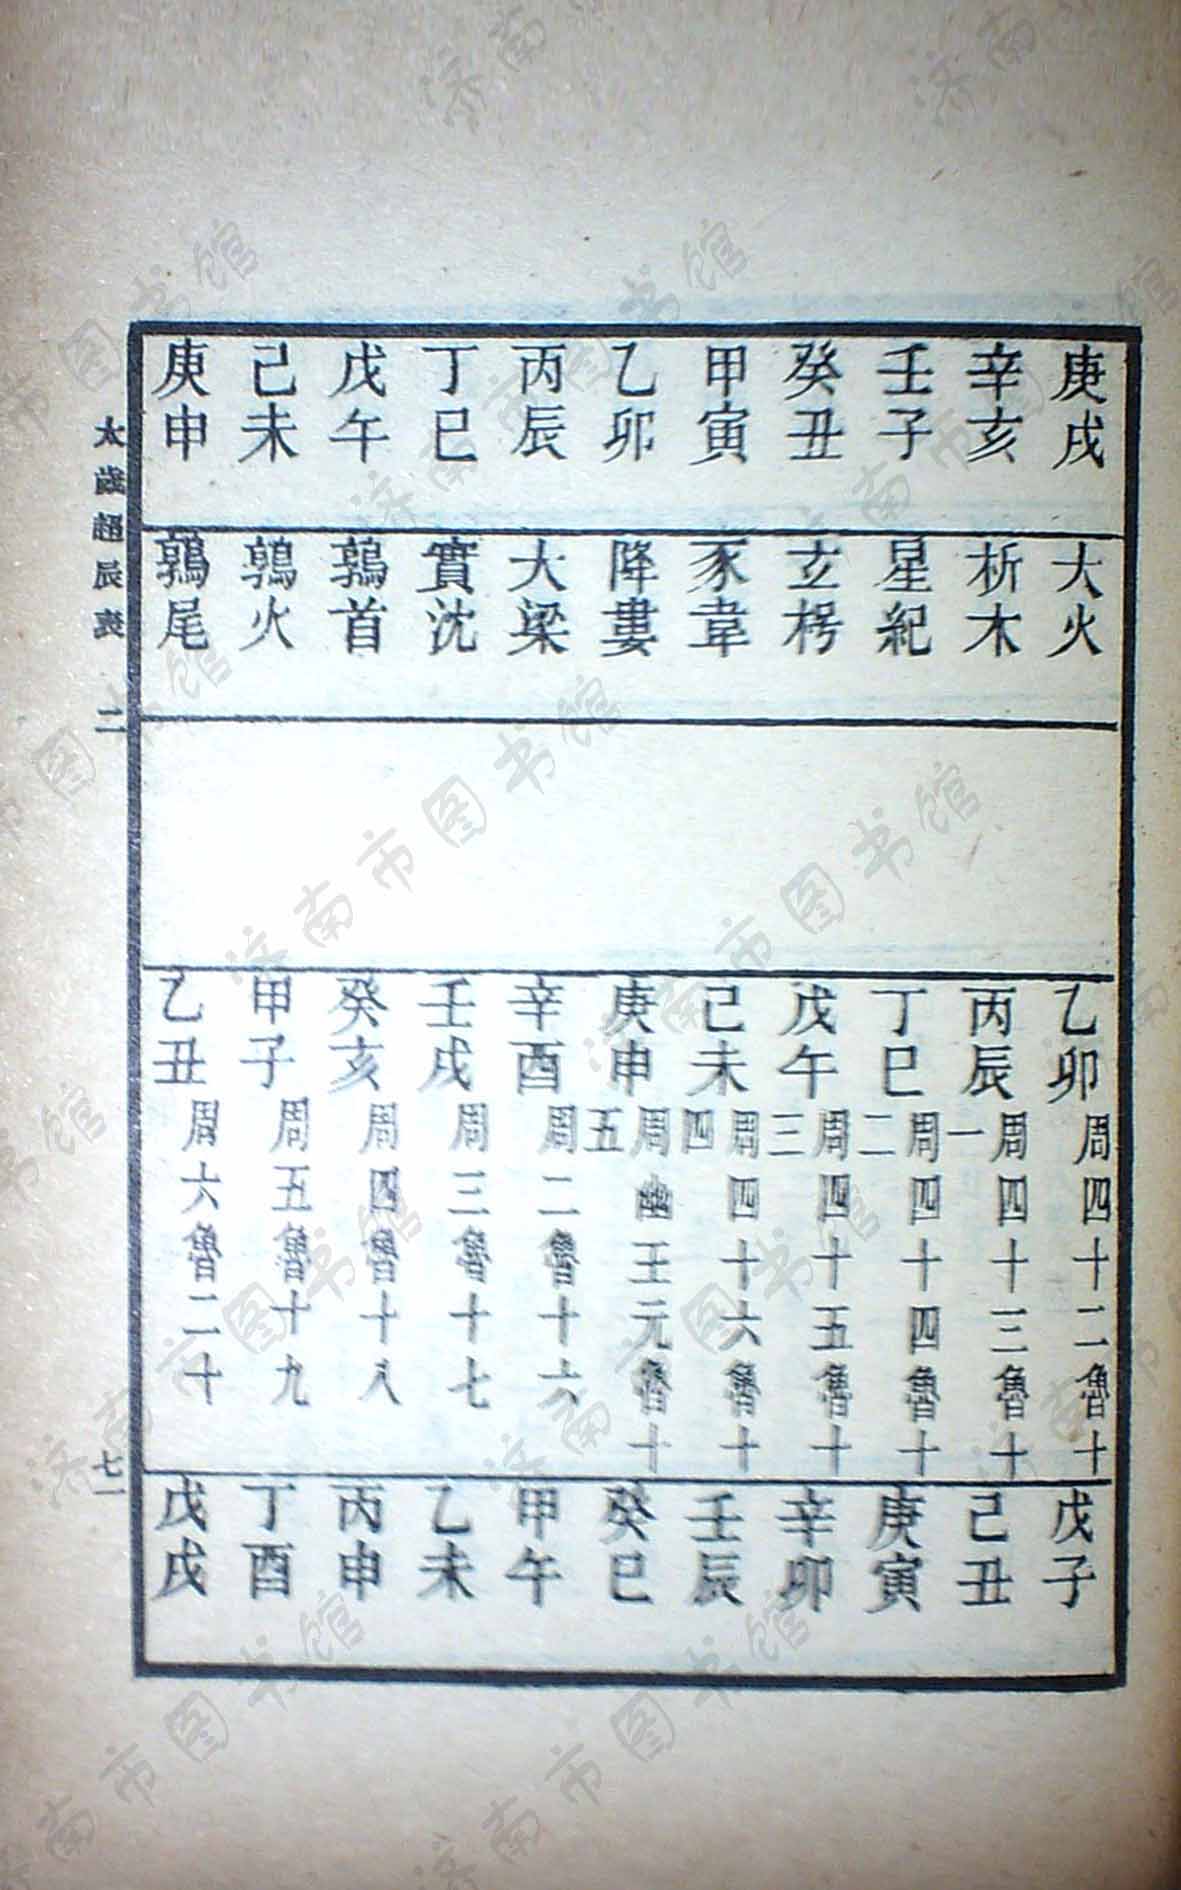 庚戌 大火 乙卯 周四十二魯十 戊子
辛亥 析木 丙辰 周四十三魯十一 己丑
壬子 星紀 丁巳 周四十四魯十二 庚寅
癸丑 玄枵 戊午 周四十五魯十三 辛卯
甲寅 豕韋 己未 周四十六魯十四 壬辰
乙卯 降婁 庚申 周幽王元魯十五 癸巳
丙辰 大梁 辛酉 周二魯十六 甲午
丁巳 實沈 壬戌 周三魯十七 乙未
戊午 鶉首 癸亥 周四魯十八 丙申
己未 鶉火 甲子 周五魯十九 丁酉
庚申 鶉尾 乙丑 周六魯二十 戊戌
太歲超辰表 二 七一
济南市图书馆